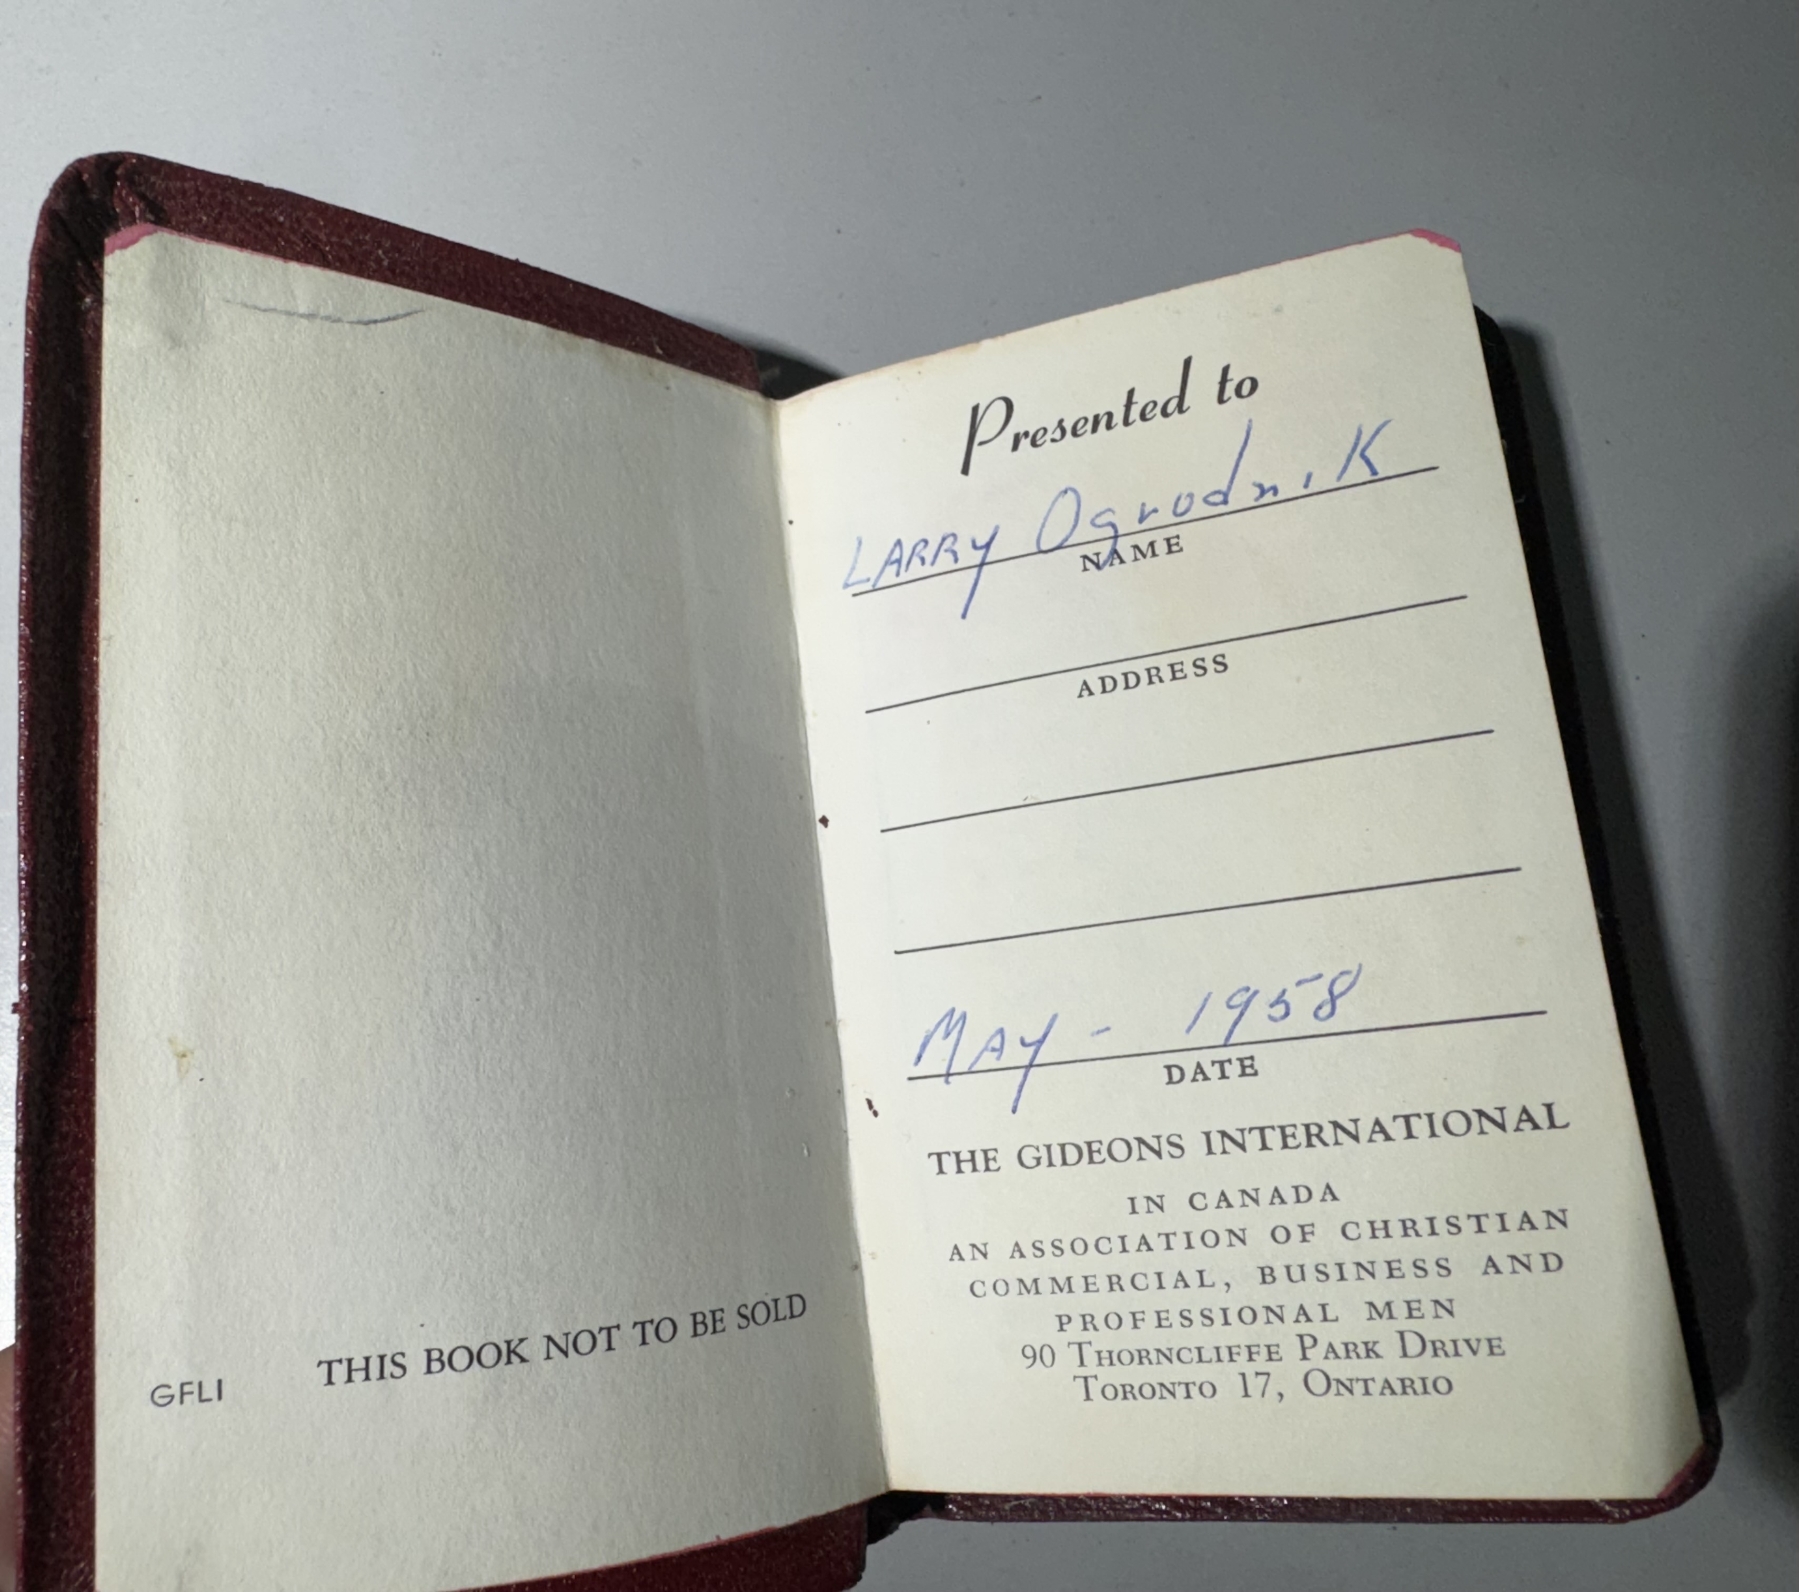 THIS BOOK NOT TO BE SOLD
GFLI
Presented to
LARRY Ogrodnik
NAME
ADDRESS
MAY - 1958
DATE
THE GIDEONS INTERNATIONAL
IN CANADA
AN ASSOCIATION OF CHRISTIAN
COMMERCIAL, BUSINESS AND
PROFESSIONAL MEN
90 THORNCLIFFE PARK DRIVE
TORONTO 17, ONTARIO